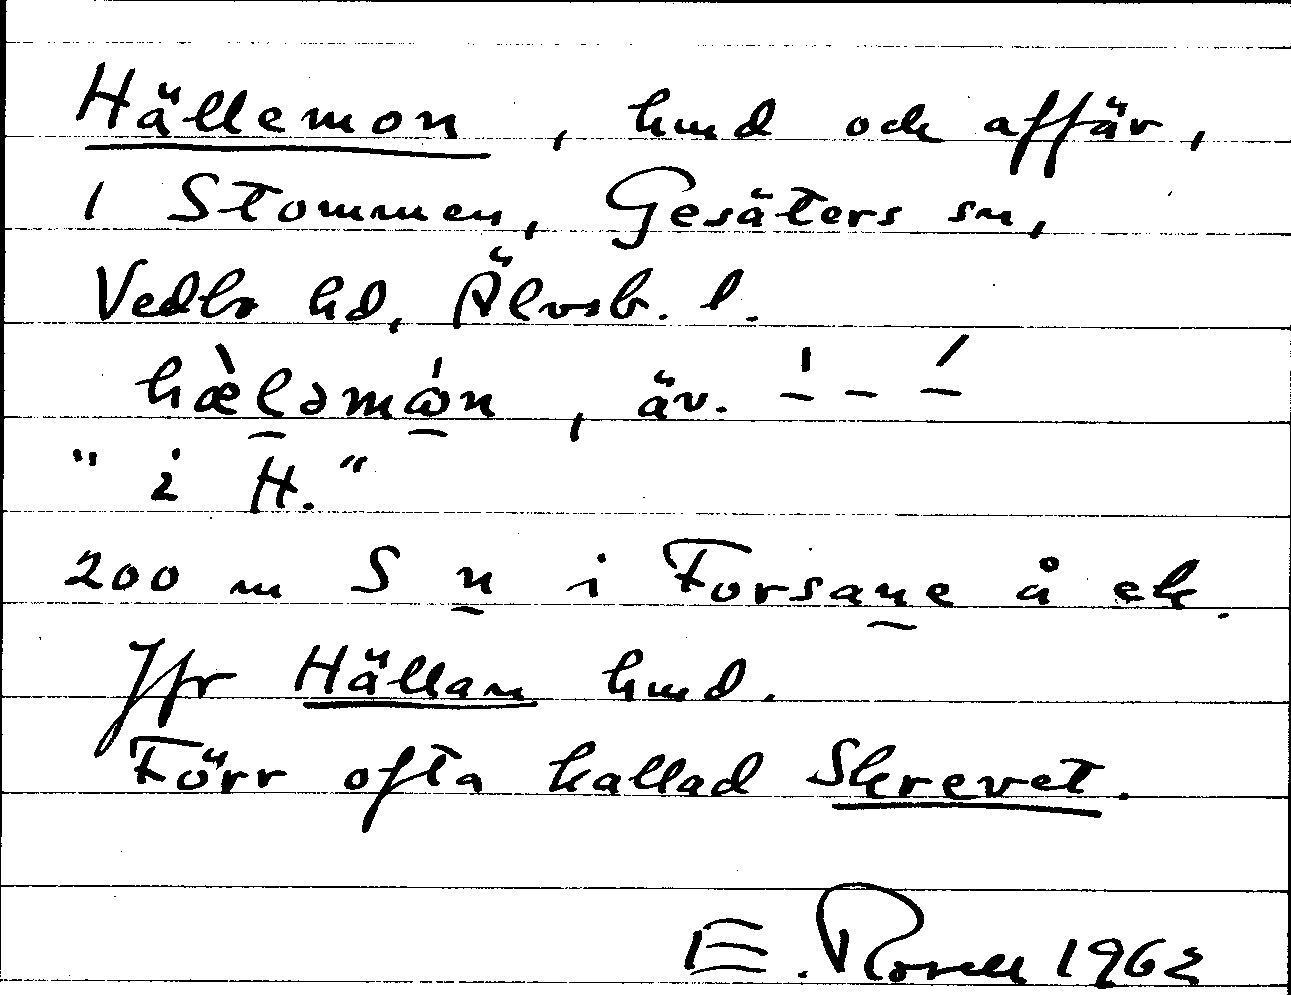 Hällemon, hmd och affär,
1 Stommen, Gesäters sn,
Vedbo hd, Älvsb. l.
hæ̀l̠əmώ̠n, äv. –́ – –́
"i H."
200 m S n̠ i Forsan̠e å ek.
Jfr Hällan hmd.
Förr ofta kallad Skrevet.
E. 1962